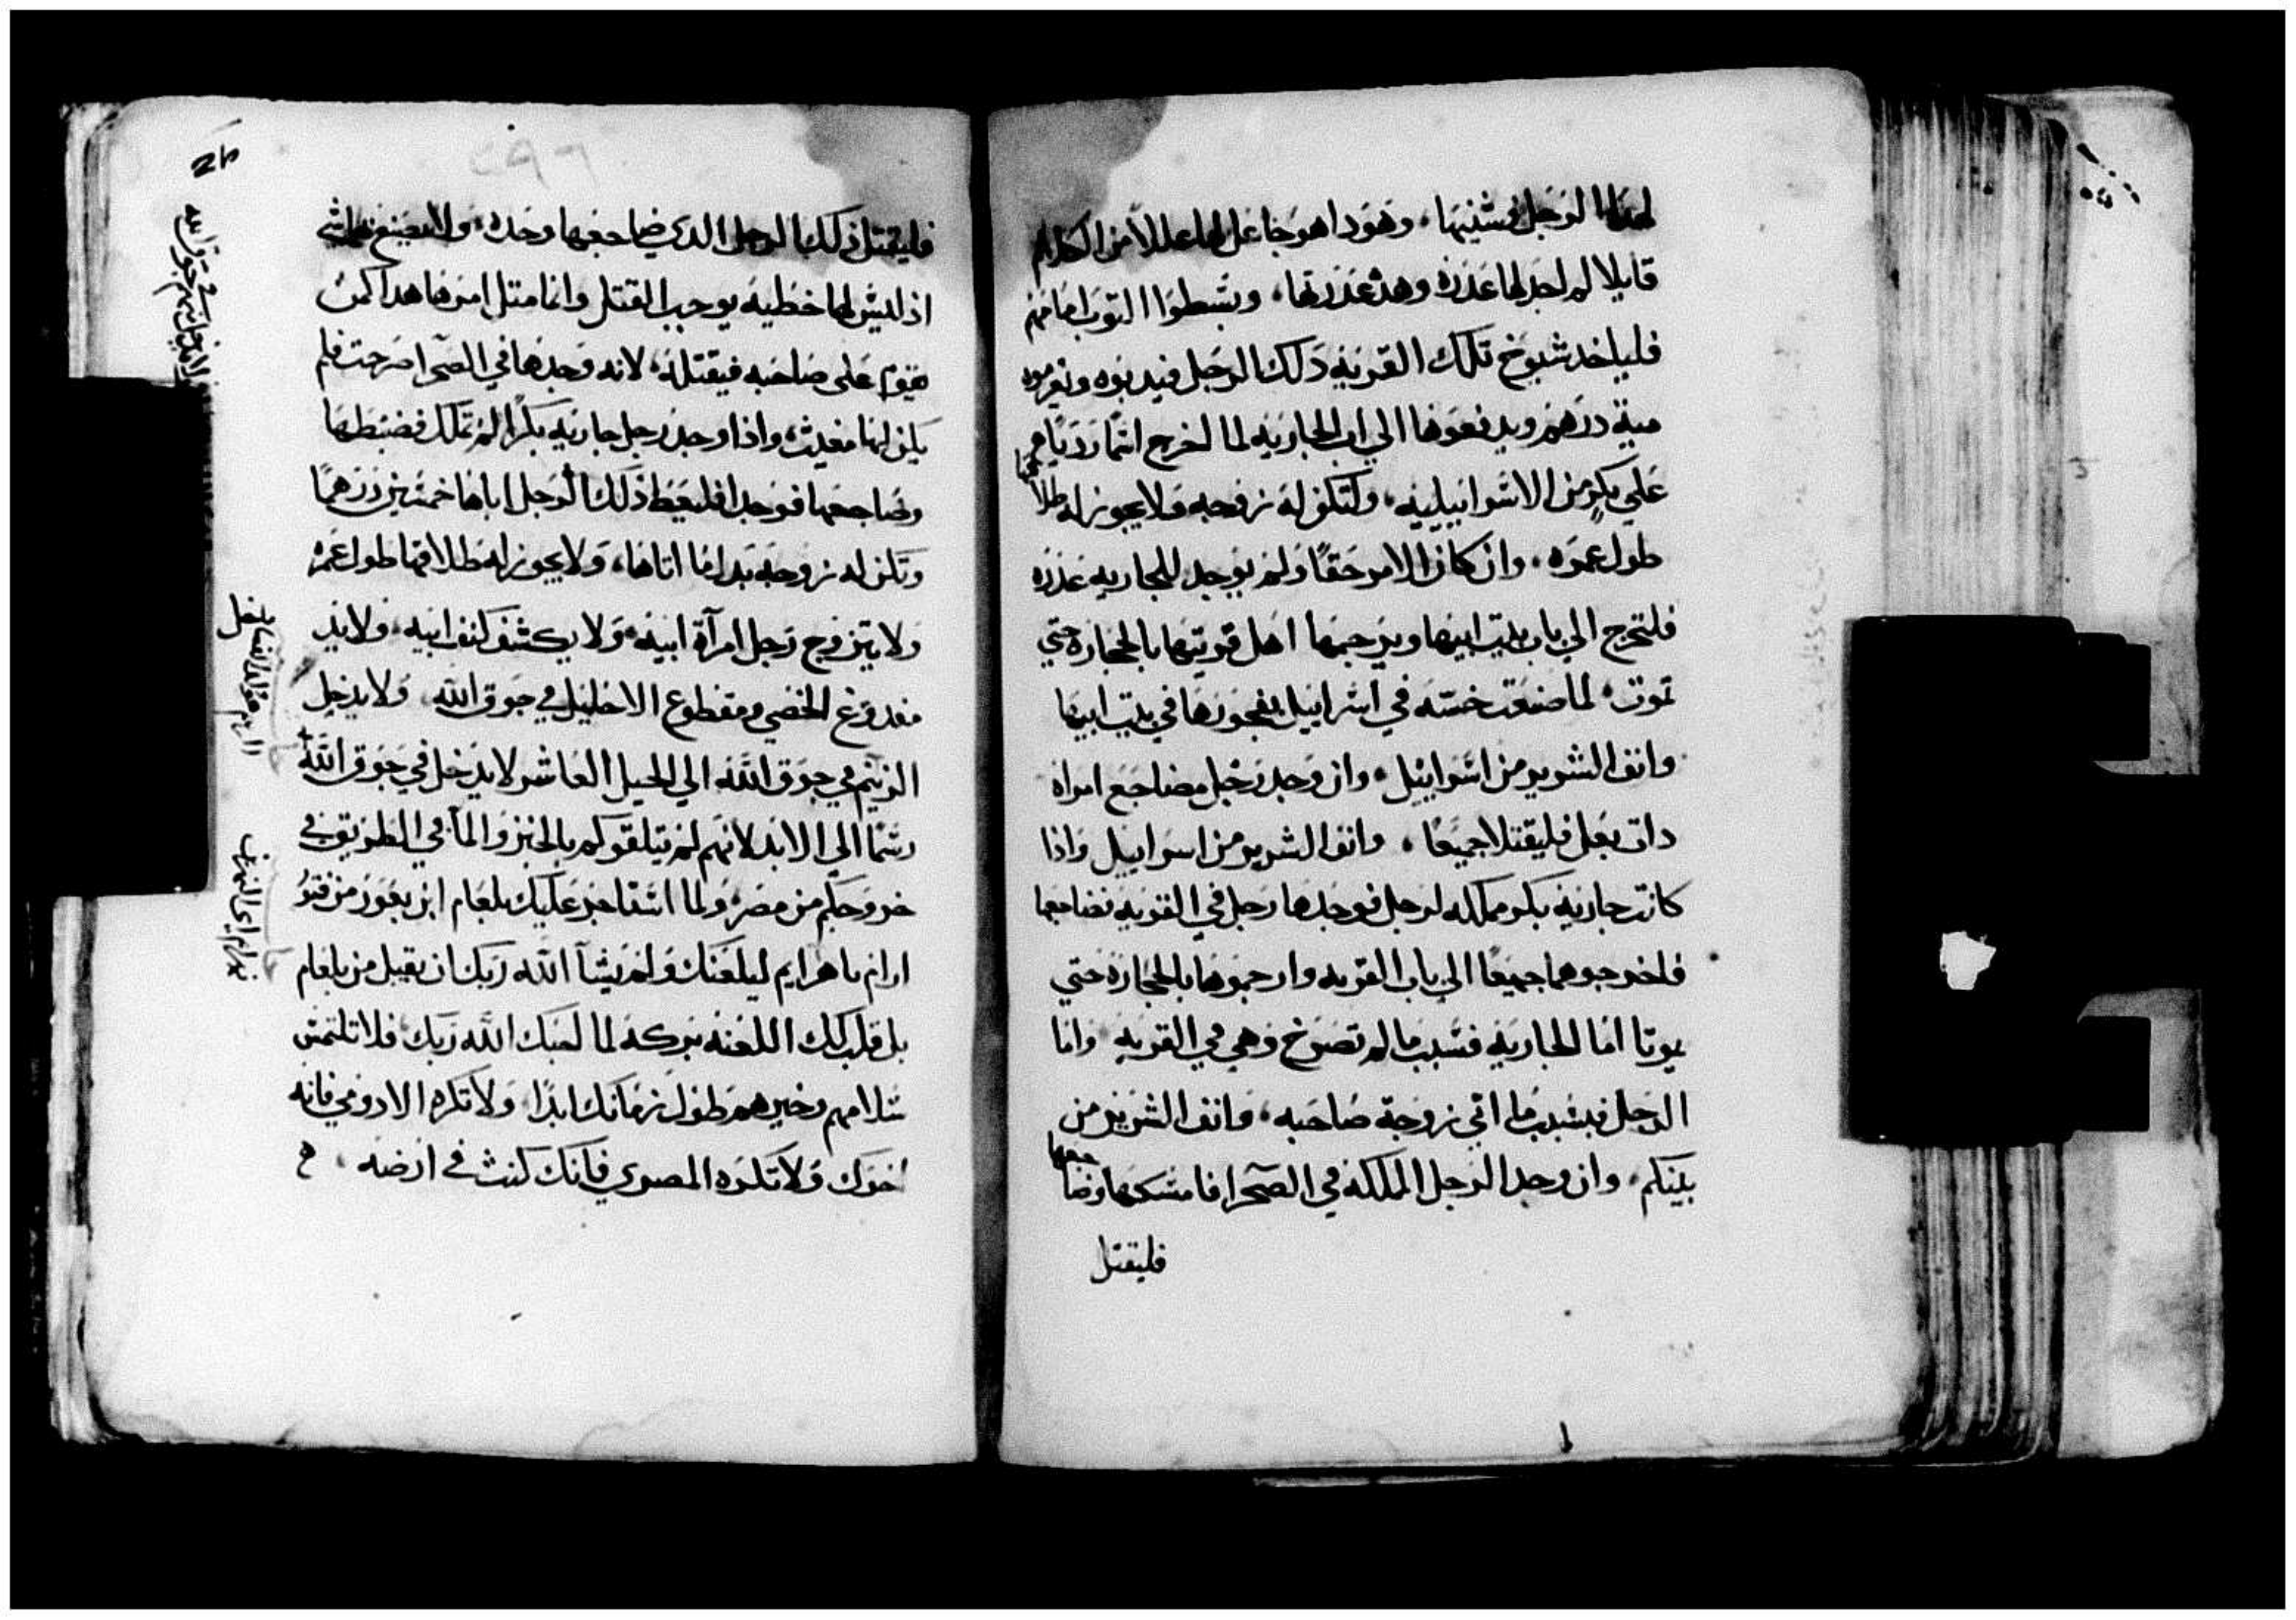 لهذا الرجل فشنيها، وهوذا هو جاعل لها عللا من الكلام
قايلا لم اجد لها عذره وهذه عذرتها، ويبسطوا التوب امامهم
فلياخد شيوخ تلك القريه دلك الرجل فيدبوه ويغرموه
مية درهم ويدفعوها الي اب الجاريه لما اخرج اسما رديا
علي بكر من الاسراييليه، ولتكن له زوجه ولا يجوز له طلاقها
طول عمره، وان كان الامر حقا ولم يوجد للجاريه عذره
فلتخرج الي باب بيت ابيها ويرجمها اهل قريتها بالحجاره حتي
تموت لما صنعت خسه في اسراييل بفجورها في بيت ابيها
وانف الشرير من اسراييل، وان وجد رجل مضاجع امراه
دات بعل فليقتلا جميعا، وانف الشرير من اسراييل واذا
كانت جاريه بكر مملكه لرجل فوجدها رجل في القريه فضاجعها
فاخرجوهما جميعا الي باب القريه وارجموها بالحجاره حتي
يموتا اما الجاريه فبسبب ما لم تصرخ وهي في القريه واما
الرجل فبسبب ما اتي زوجة صاحبه، وانف الشرير من
بينكم، وان وجد الرجل المملكه في الصحرا فامسكها وضاجعها
فليقتل
٢٩٦
فليقتل ذلك الرجل الدي ضاجعها وحده، ولا يصنع بها شي
اذ ليس لها خطيه يوجب القتل وانما متل امرها هدا كمن
يقوم علي صاحبه فيقتله، لانه وجدها في الصحرا صرخت فلم
يكن لها مغيث، واذا وجد رجل جاريه بكرا لم تملك فضبطها
وضاجعها فوجدا فليعط ذلك الرجل اباها خمسين درهما
وتكن له زوجه بدل ما اتاها، ولا يجوز له طلاقها طول عمره
ولا يتزوج رجل امرآة ابيه، ولا يكشف كنف ابيه، ولا يد
مفدوغ الخصي ومقطوع الاحليل في جوق الله ولا يدخل
الزنيم في جوق الله الي الجيل العاشر لا يدخل في جوق الله
رسما الي الابد لانهم لم يتلقوكم بالخبز والمآ في الطريق في
خروجكم من مصر ولما استاجر عليك بلعام ابن بعور من فتور
ارام ناهرايم ليلعنك ولم يشآ الله ربك ان يقبل من بلعام
بل قلب لك اللعنه بركه لما احبك الله ربك فلا تلتمس
سلامهم وخيرهم طول زمانك ابدا ولا تكره الادومي فانه
اخوك ولا تكره المصري فانك كنت في ارضه